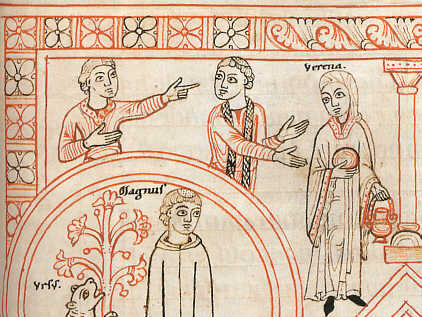 Verena.
Magnus
Vrss.